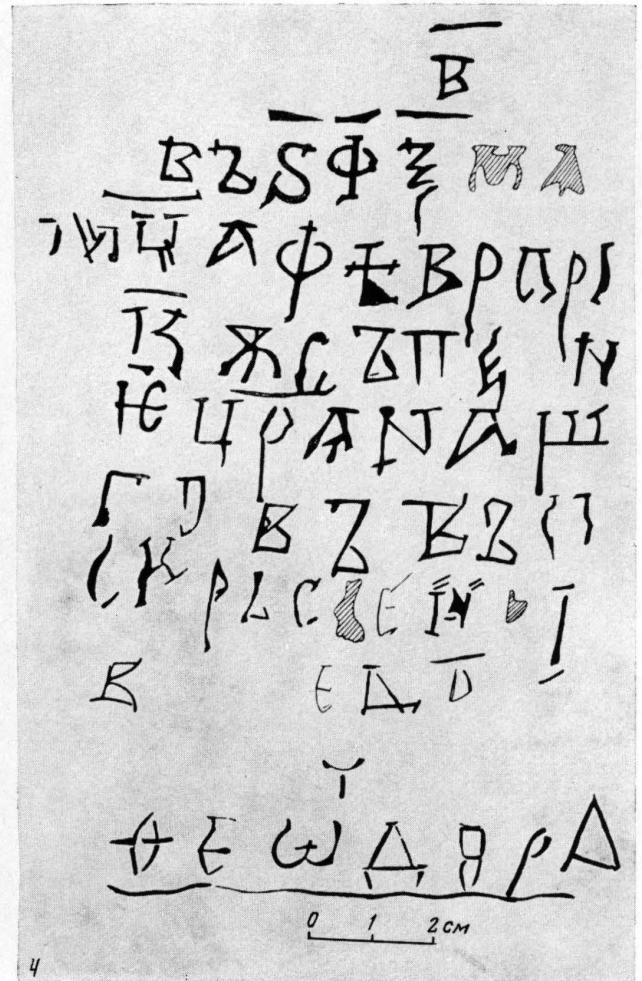 В
ВЪ ЅФѮ МА
МЦА ФЕВРАРІ
К ѪСЪПЕ N
Ѥ ЦРА NАШ
ГО ВЪ ВЪ П
СКРЬС Е ІN І
В ЕД
Т
ѲЕѠДОРА
0 1 2 см
4